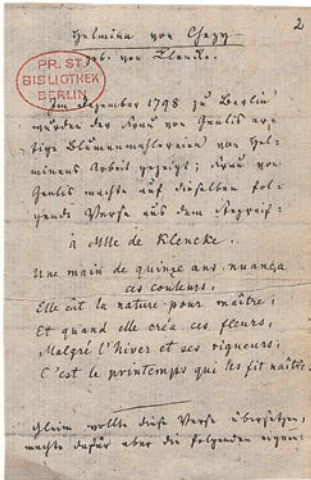 2
Helmina von Chezy
geb. von Klencke.
PR. ST.
BIBLIOTHEK
BERLIN
Im Dezember 1798 zu Berlin
wurden der Frau von Genlis er-
tige Blumenmahlereien von Hel-
minens Arbeit gezeigt; Frau von
Genlis machte auf dieselben fol-
gende Verse aus dem Stegreif:
à Mlle de Klencke.
Une main de quinze ans nuança
ces couleurs,
Elle eût la nature pour maître;
Et quand elle créa ces fleurs,
Malgré l'hiver et ses rigueurs,
C'est le printemps qui les fit naître.
Gleim wollte diese Verse übersetzen,
machte dafür aber die folgenden eignen: